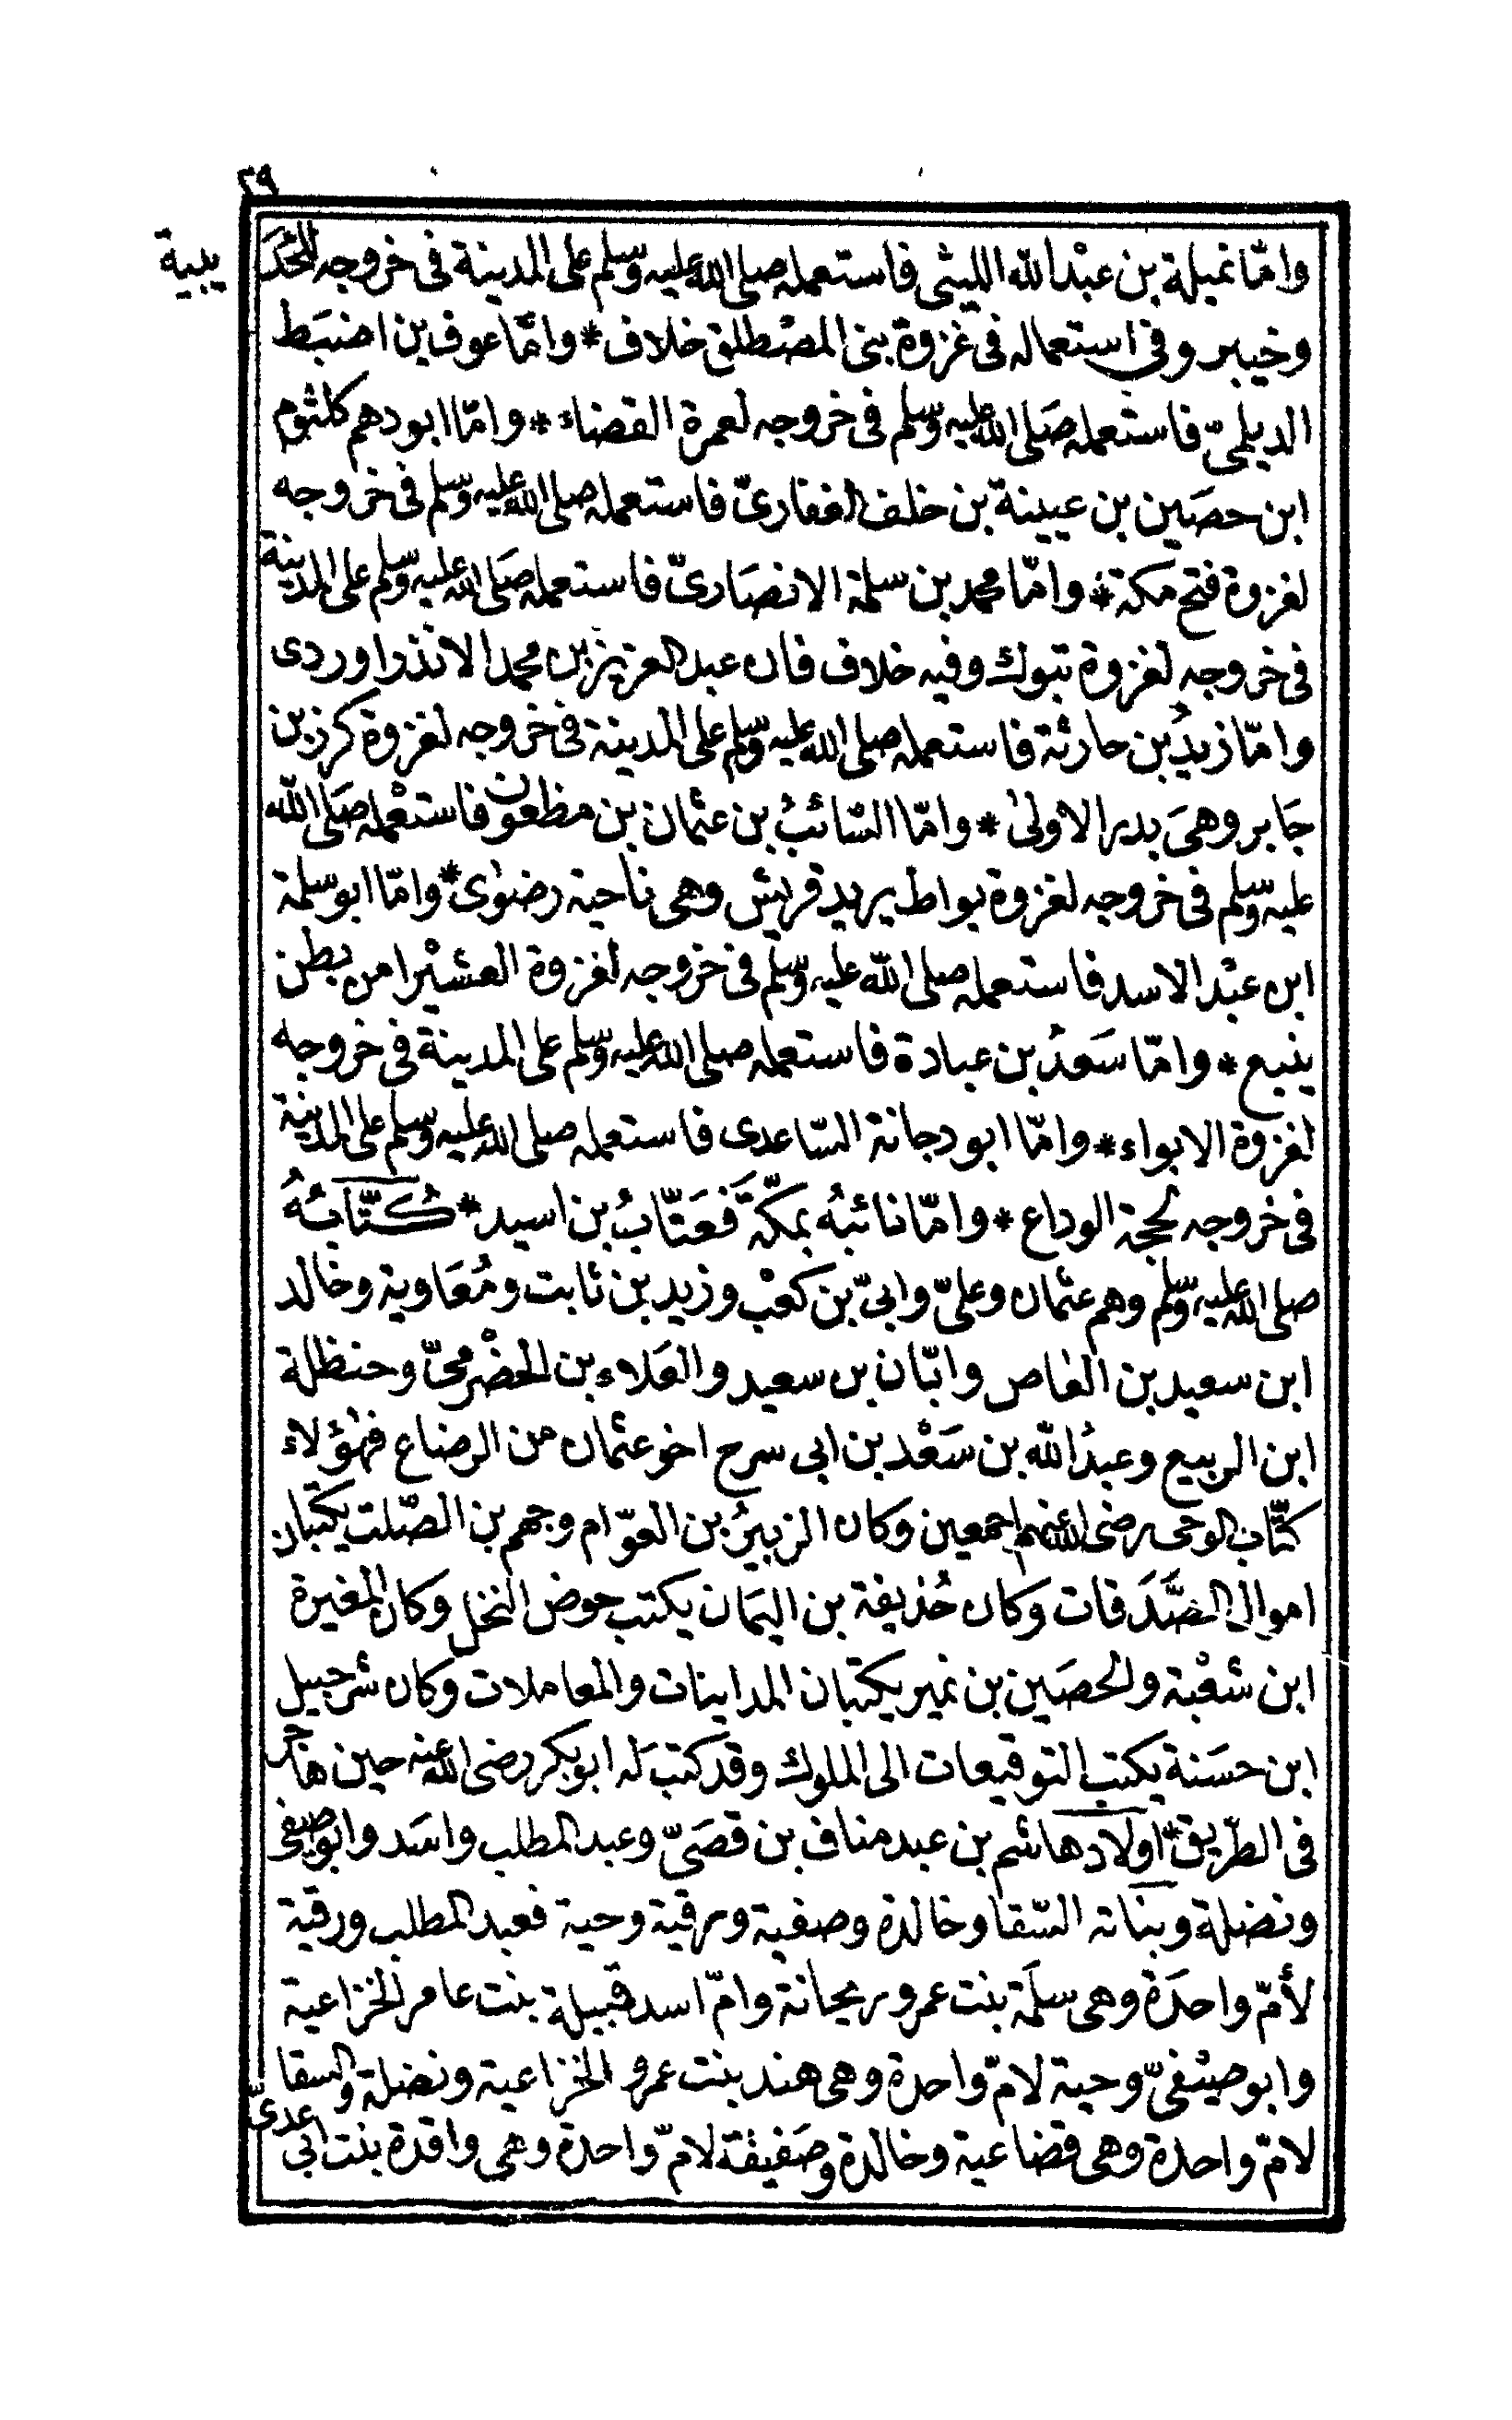 ٢٩
وامّا نميلة بن عبْد الله الليثى فاستعمله صلى الله عليه وسلم على المدينة فى خروجه للحُدَ يبية
وخيبر وفى استعماله فى غزوة بنى المصْطلق خلاف * وامّا عوف بن اضبَط
الديلمىّ فاستعمله صَلى الله عليه وسلم فى خروجه لعمرة القضاء * وامّا ابو دهم كلثوم
ابن حصَين بن عيينة بن خلف الغفارىّ فاستعمله صلى الله عليه وسلم فى خروجه
لغزوة فتح مكة * وامّا محمد بن سلمة الانصَارىّ فاستعمله صَلى الله عليه وسلم على المدينة
فى خروجه لغزوة تبوك وفيه خلاف فان عبد العزيز بن محمد الانذراوردى
وامّا زيدُ بن حارثة فاستعمله صلى الله عليه وسلم على المدينة فى خروجه لغزوة كرز بن
جَابر وهىَ بدر الاولىٰ * وامّا السّائبُ بن عثمان بن مظعون فاستعْمله صَلى الله
عليه وسلم فى خروجه لغزوة بواط يريد قريش وهى ناحية رضوٰى * وامّا ابو سلمة
ابن عبْد الاسد فاستعمله صلى الله عليه وسلم فى خروجه لغزوة العشيْرا من بطن
ينبع * وامّا سَعدُ بن عبادة فاستعمله صلى الله عليه وسلم على المدينة فى خروجه
لغزوة الابواء * وامّا ابو دجانة السّاعدى فاستعمله صلى الله عليه وسلم على المدينة
فى خروجه لحجة الوداع * وامّا نائبُه بمكّة فَعَتّابُ بن اسيد * كُتّابُهُ
صلى الله عليه وسلم وهم عثمان وعلىّ وابىّ بن كعْب وزيد بن ثابت ومُعَاوية وخالد
ابن سعيد بن العاص وابّان بن سعيد والعَلاء بن الحضْرمىّ وحنظلة
ابن الربيع وعبدُ الله بن سَعْد بن ابى سرح اخو عثمان من الرضاع فهٰؤلاء
كتّاب الوحى رضى الله عنهم اجمعين وكان الزبيرُ بن العوّام وجهم بن الصّلت يكتبان
اموال الصَّدَقات وكان حُذيفة بن اليمَان يكتب حوض النخل وكان المغيرة
ابن شعْبة والحصَين بن نمير يكتبان المداينات والمعاملات وكان شرحبيل
ابن حسَنة يكتب التوقيعات الى الملوك وقد كتب لَه ابو بكر رضى الله عنه حين هاجر
فى الطّريق * اولاد هاشم بن عبد مناف بن قصَىّ وعبد المطلب واسَد وابو صيفى
ونضلة وبناته الشفا وخالدة وصفية ورقية وحية فعبد المطلب ورقية
لأمّ واحدَة وهى سلمَة بنت عمرو ريحانة وامّ اسد قبيلة بنت عامر الخزاعية
وابو صيْفىّ وحية لامّ واحدة وهى هند بنت عمرو الخزاعية ونضلة والشفا
لامّ واحدة وهى قضاعية وخالدة وصَفيقة لامّ واحدة وهى واقدة بنت ابى عدىّ